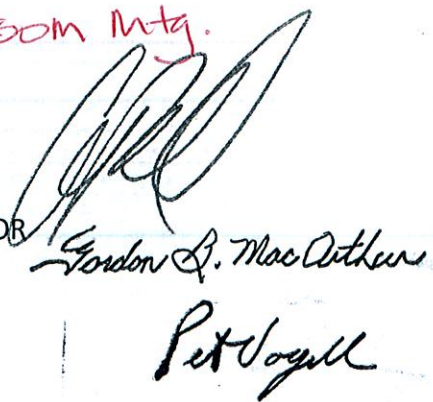 oom Mtg.
OR
Gordon B. MacArthur
Pet Vogell